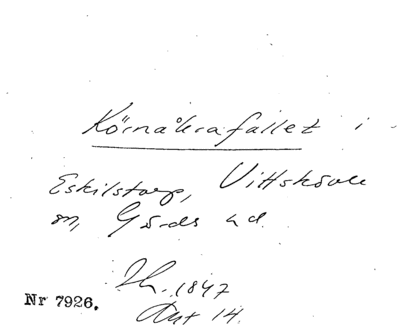 Körnåkrafallet i
Eskilstorp, Vittskövle
sn, Gärds hd.
Th. 1847
Nr 7926.
Akt 14.